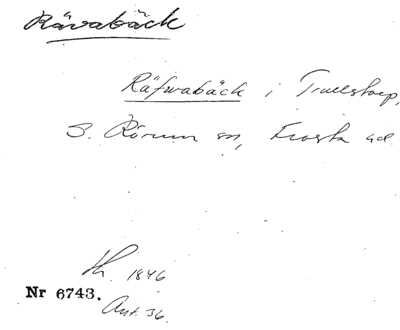 Rävabäck
Räfwabäck i Truelstorp,
S. Rörum sn, Frosta hd
1846
Nr 6743.
Ant. 36.